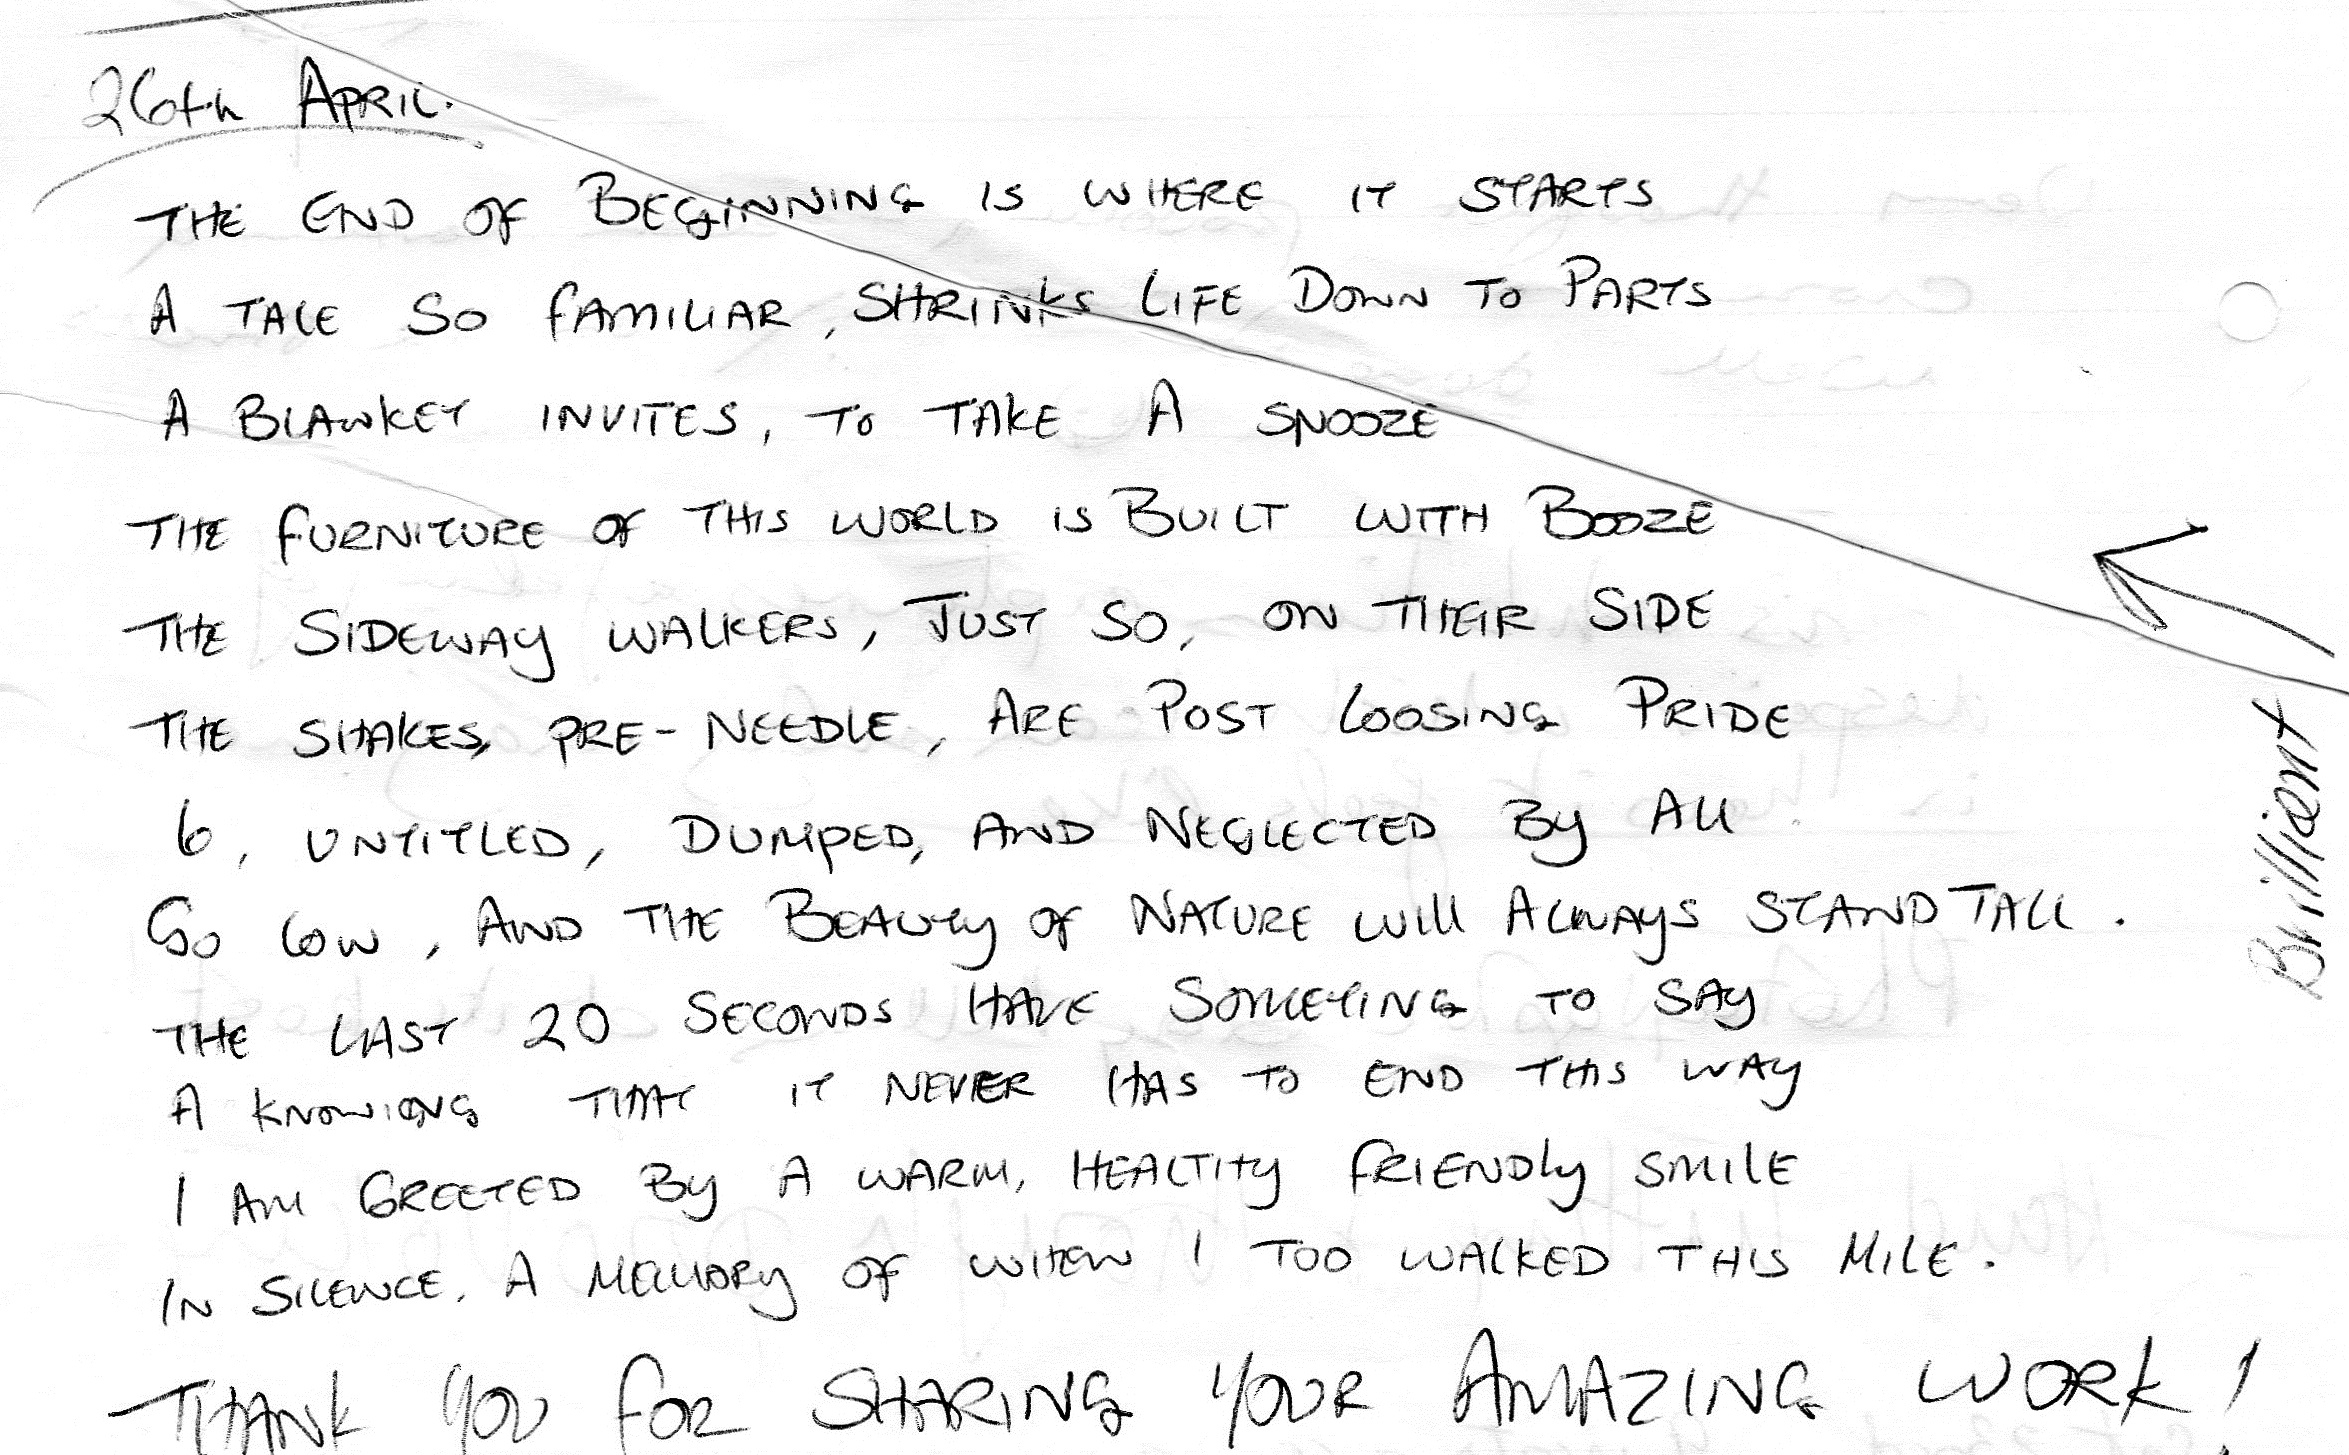 26th APRIL.
THE END OF BEGINNING IS WHERE IT STARTS
A TALE SO FAMILIAR, SHRINKS LIFE DOWN TO PARTS
A BLANKET INVITES, TO TAKE A SNOOZE
THE FURNITURE OF THIS WORLD IS BUILT WITH BOOZE
THE SIDEWAY WALKERS, JUST SO, ON THEIR SIDE
THE SHAKES, PRE-NEEDLE, ARE POST LOOSING PRIDE
6, UNTITLED, DUMPED, AND NEGLECTED BY ALL
GO LOW, AND THE BEAUTY OF NATURE WILL ALWAYS STAND TALL.
THE LAST 20 SECONDS HAVE SOMETING TO SAY
A KNOWING THAT IT NEVER HAS TO END THIS WAY
I AM GREETED BY A WARM, HEALTHY FRIENDLY SMILE
IN SILENCE, A MEMORY OF WHEN I TOO WALKED THIS MILE.
THANK YOU FOR SHARING YOUR AMAZING WORK!
Brilliant